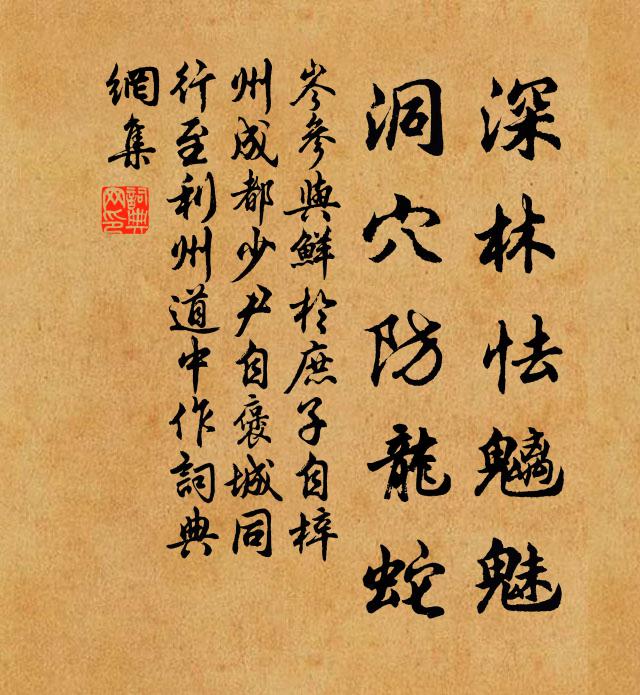 深林怯魑魅
洞穴防龍蛇
岑參與鮮於庶子自梓
州成都少尹自褒城同
行至利州道中作詞典
網集
詞典網印